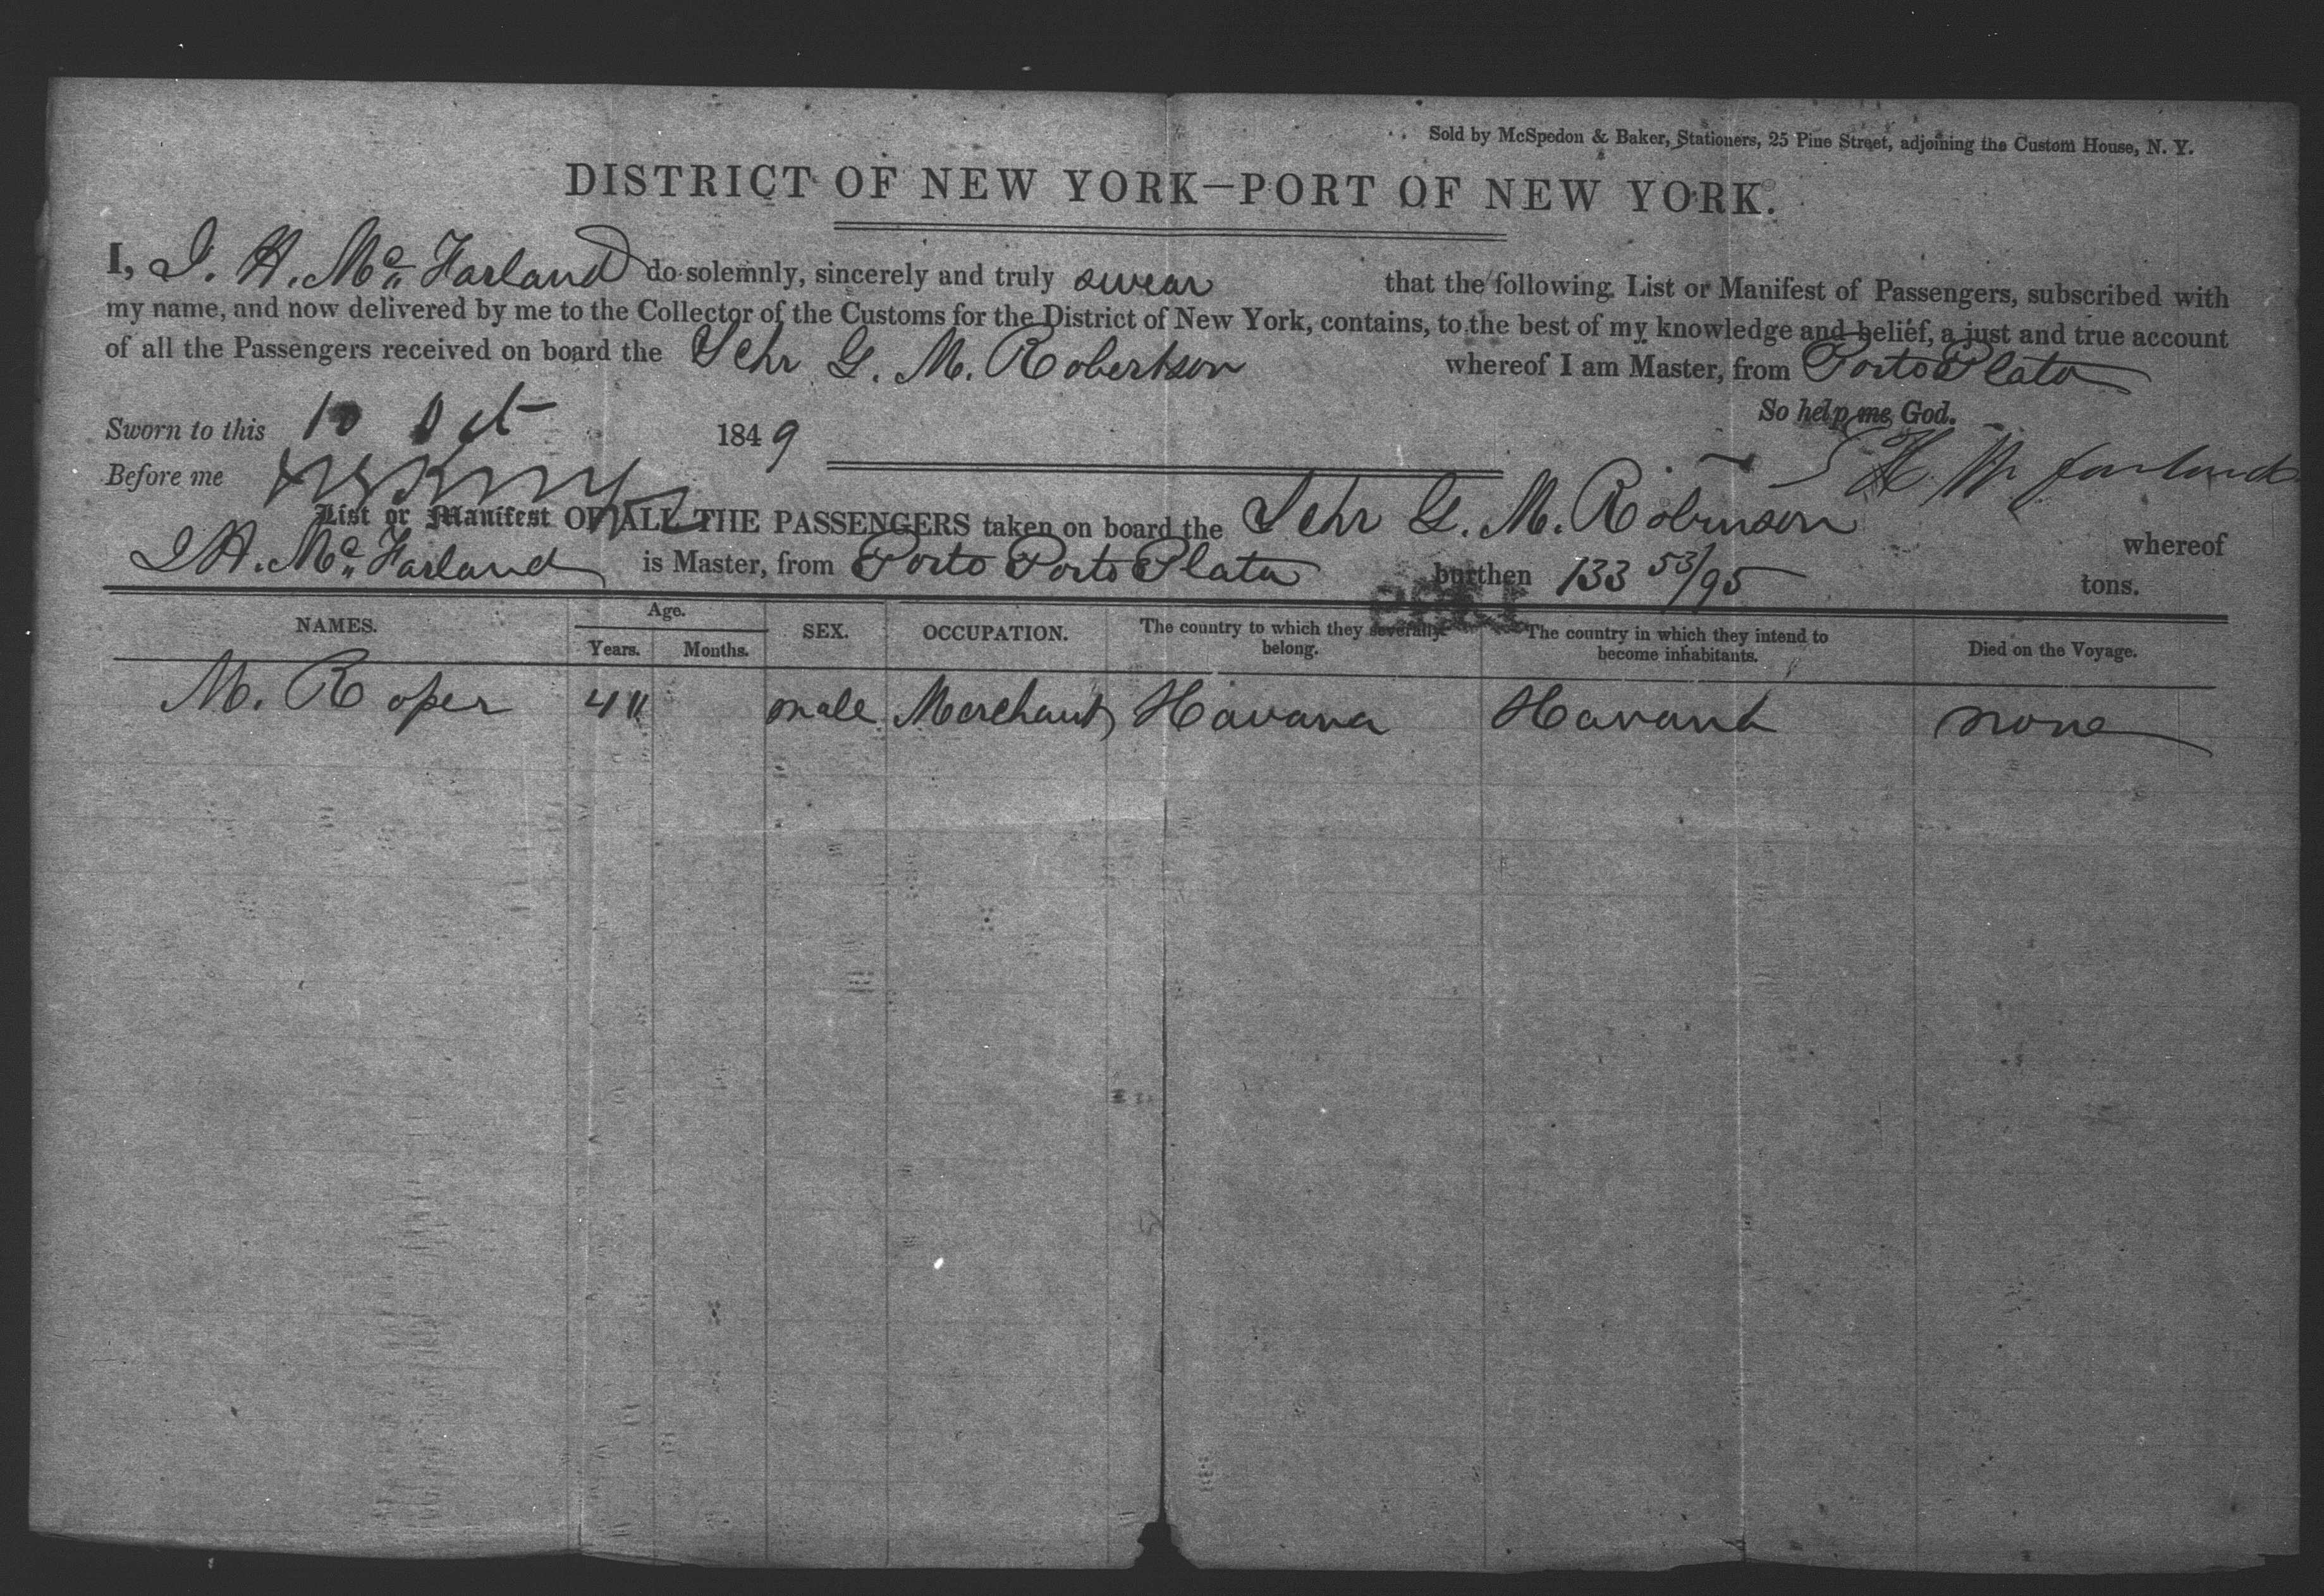 Sold by McSpedon & Baker, Stationers, 25 Pine Street, adjoining the Custom House, N. Y.
DISTRICT OF NEW YORK—PORT OF NEW YORK.
I, J. H. Mc Farland do solemnly, sincerely and truly swear that the following List or Manifest of Passengers, subscribed with
my name, and now delivered by me to the Collector of the Customs for the District of New York, contains, to the best of my knowledge and belief, a just and true account
of all the Passengers received on board the Schr G. M. Robertson whereof I am Master, from Porto Plata
So help me God.
Sworn to this 10 Oct 1849
Before me
J H Mc farland
List or Manifest OF ALL THE PASSENGERS taken on board the Schr G. M. Robinson whereof
J H. Mc Farland is Master, from Porto Porto Plata burthen 133 53/95 tons.
NAMES. Age. Years. Months. SEX. OCCUPATION. The country to which they severally belong. The country in which they intend to become inhabitants. Died on the Voyage.
M. Roper male Merchant Havana Havana none